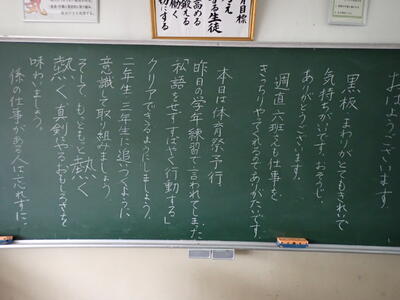 おはようございます。
黒板、まわりがとてもきれいで
気持ちがいいです。おそうじ、
ありがとうございます。
週直六班さんも仕事を
きっちりやってくれるのでありがたいです。
本日は体育祭予行
昨日の学年練習で言われてしまった
「私語をせずすばやく行動する」
クリアできるようにしましょう。
二年生三年生に追いつくように、
意識して取り組みましょう
そして、もっともっと熱く
熱く真剣やるおもしろさを
味わいましょう。
係の仕事がある人は忘れずに。
月目標
する生徒
高める
鍛える
働く
切にする